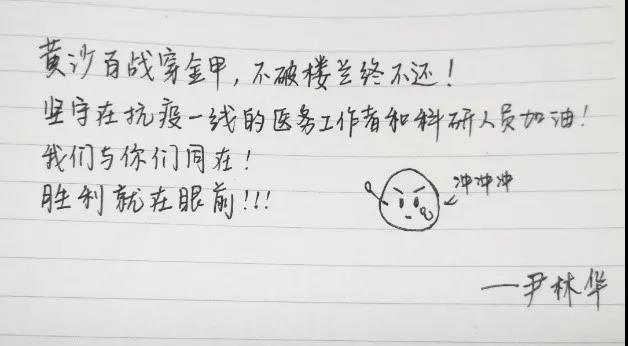 黄沙百战穿金甲，不破楼兰终不还！
坚守在抗疫一线的医务工作者和科研人员加油！
我们与你们同在！
胜利就在眼前!!!
冲冲冲
——尹林华